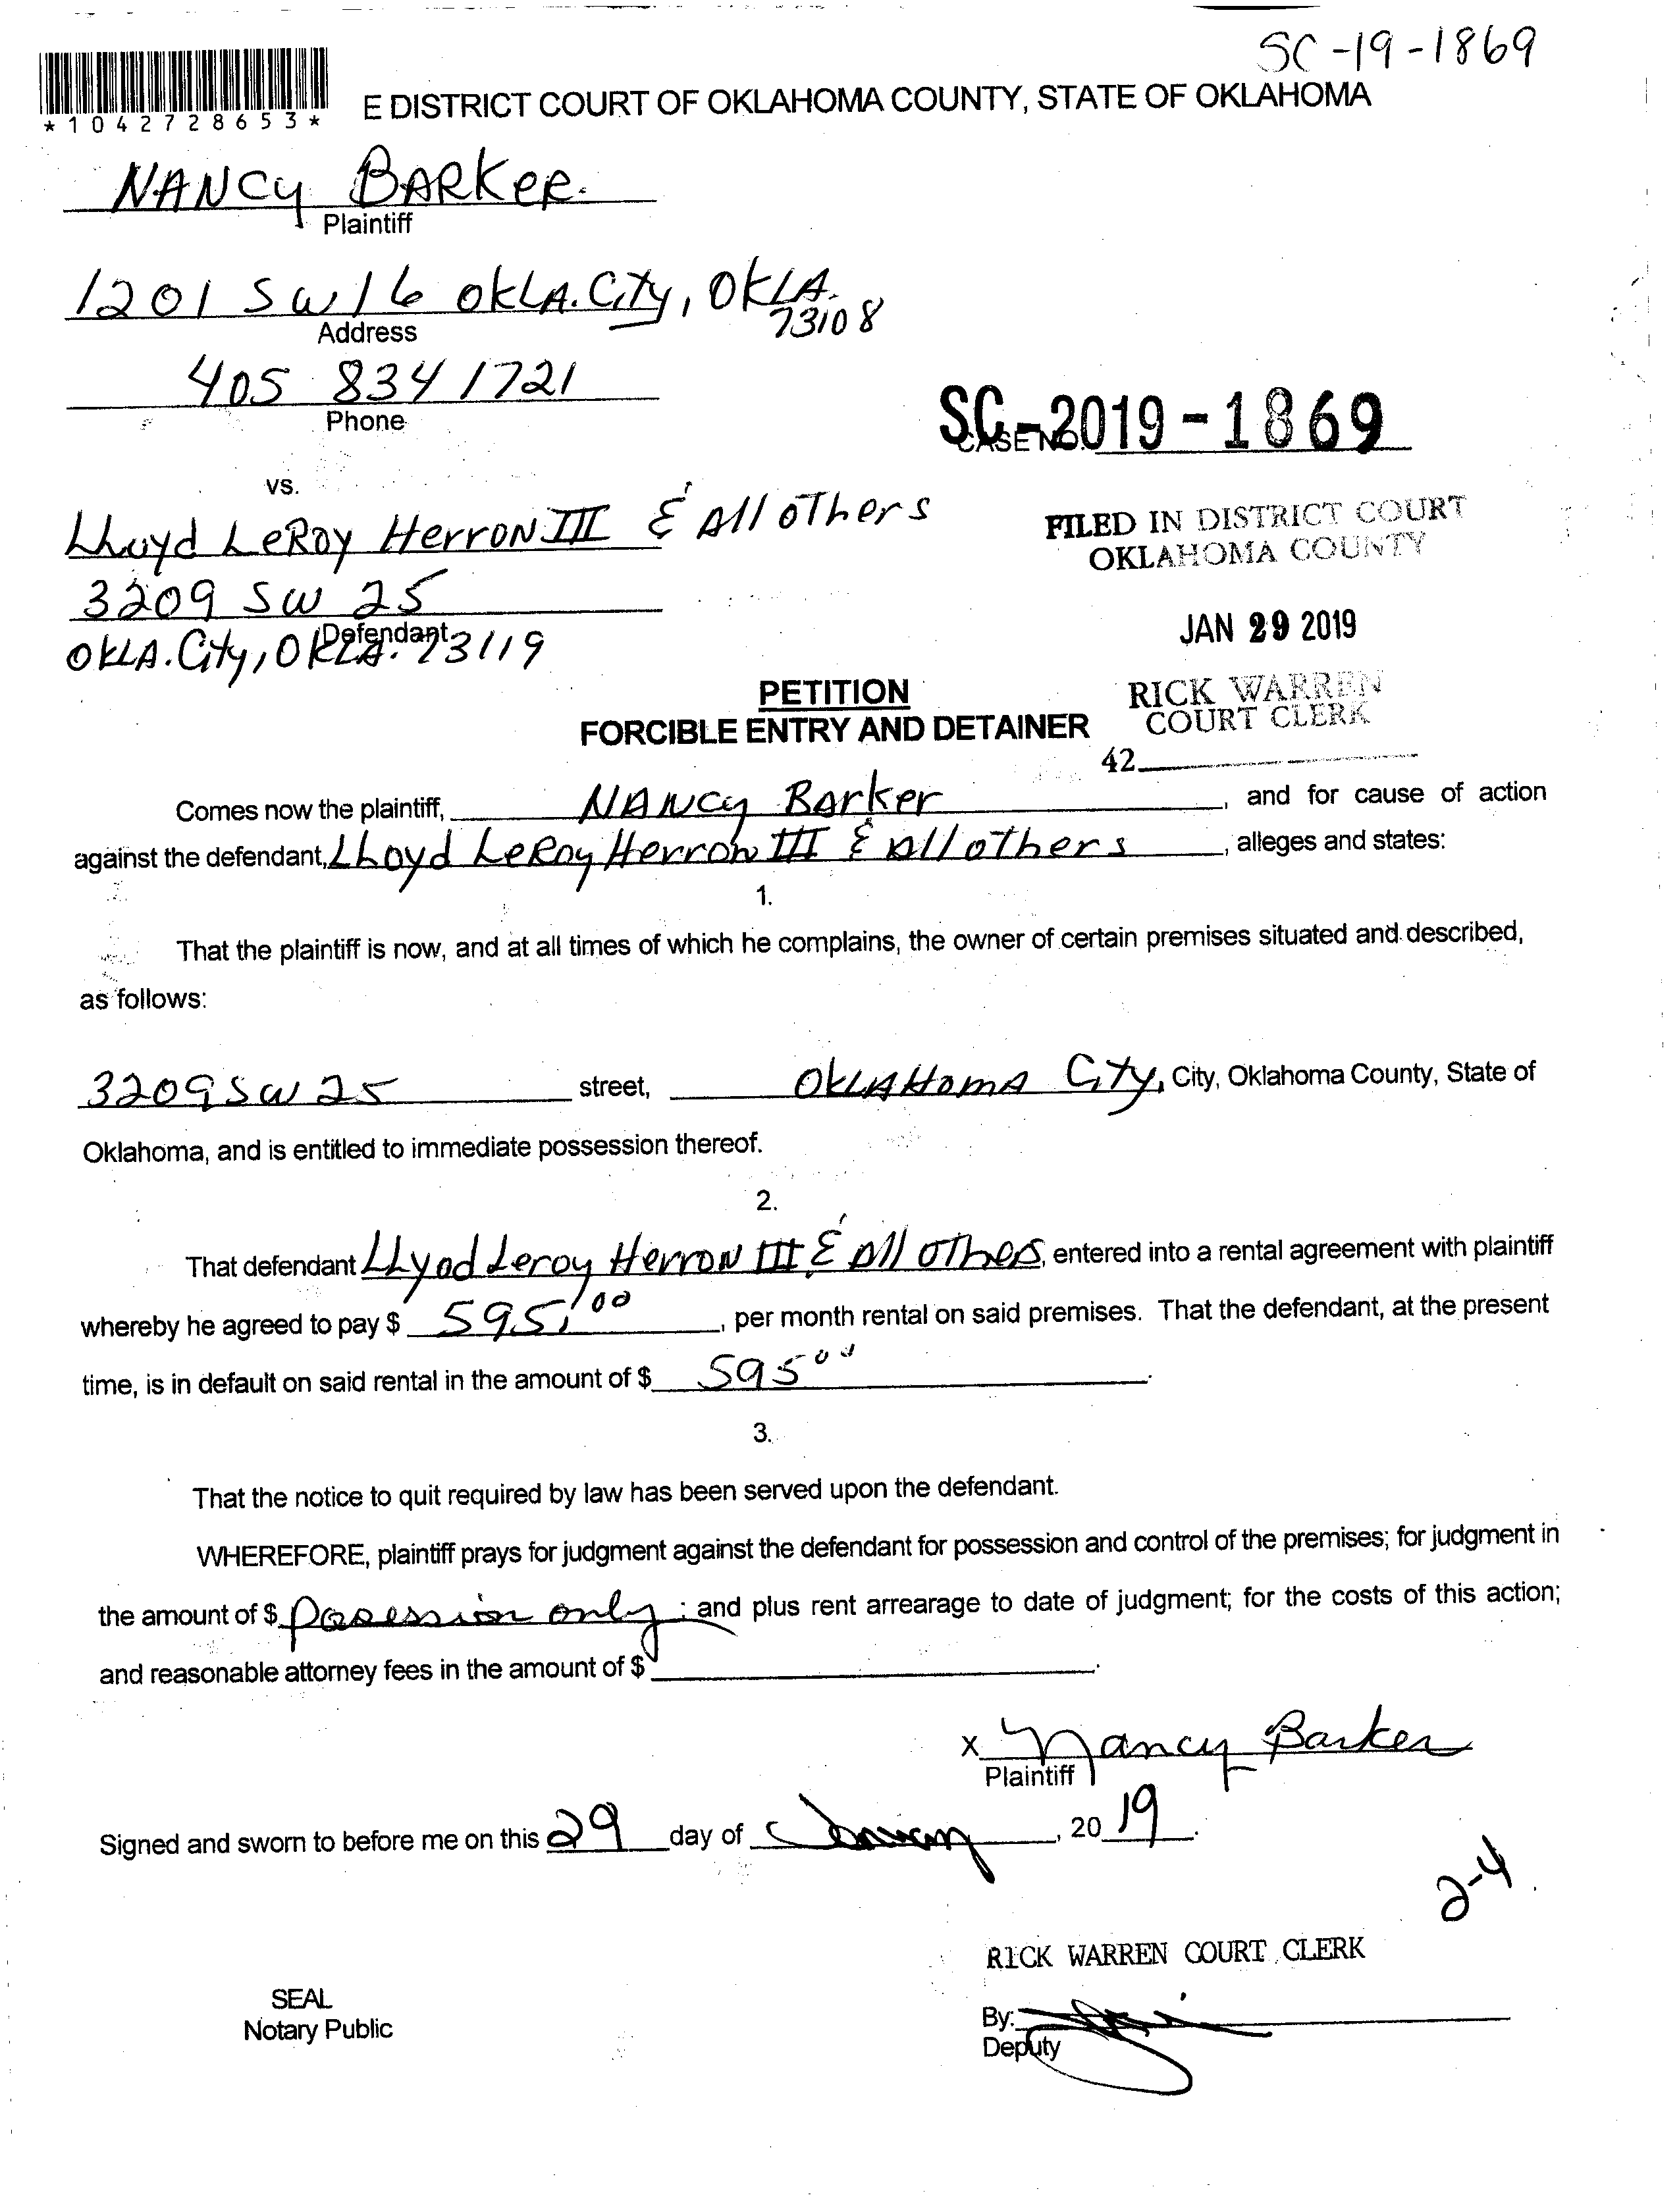 SC-19-1869
*1042728653*
E DISTRICT COURT OF OKLAHOMA COUNTY, STATE OF OKLAHOMA
NANCY BARKER.
Plaintiff
1201 SW 16 OKLA. City, OKLA.
73108
Address
405 834 1721
Phone
SC-2019-1869
CASE NO.
vs.
Lloyd LeRoy Herron III & All others
3209 SW 25
Defendant
OKLA. City, OKLA. 73119
FILED IN DISTRICT COURT
OKLAHOMA COUNTY
JAN 29 2019
RICK WARREN
COURT CLERK
42
PETITION
FORCIBLE ENTRY AND DETAINER
Comes now the plaintiff, NANCY Barker, and for cause of action
against the defendant, Lloyd LeRoy Herron III & All others, alleges and states:
1.
That the plaintiff is now, and at all times of which he complains, the owner of certain premises situated and described,
as follows:
3209 SW 25 street, OKLAHOMA City, City, Oklahoma County, State of
Oklahoma, and is entitled to immediate possession thereof.
2.
That defendant LLyod Leroy Herron III & All others, entered into a rental agreement with plaintiff
whereby he agreed to pay $ 595.00, per month rental on said premises. That the defendant, at the present
time, is in default on said rental in the amount of $ 595 00.
3.
That the notice to quit required by law has been served upon the defendant.
WHEREFORE, plaintiff prays for judgment against the defendant for possession and control of the premises; for judgment in
the amount of $ Posession only; and plus rent arrearage to date of judgment; for the costs of this action;
and reasonable attorney fees in the amount of $ .
x Nancy Barker
Plaintiff
Signed and sworn to before me on this 29 day of January, 2019.
2-4
RICK WARREN COURT CLERK
SEAL
Notary Public
By:
Deputy